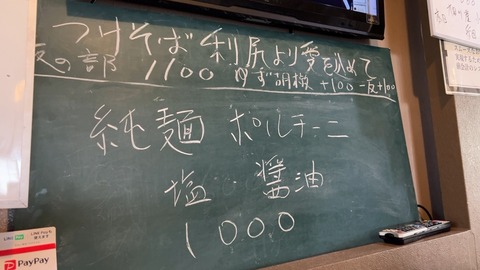 つけそば 利尻より愛を込めて
夜の部 1100 ゆず胡椒 +100 一反+100
純麺 ポルチーニ
塩 醤油
1000
LINE Pay
PayPay